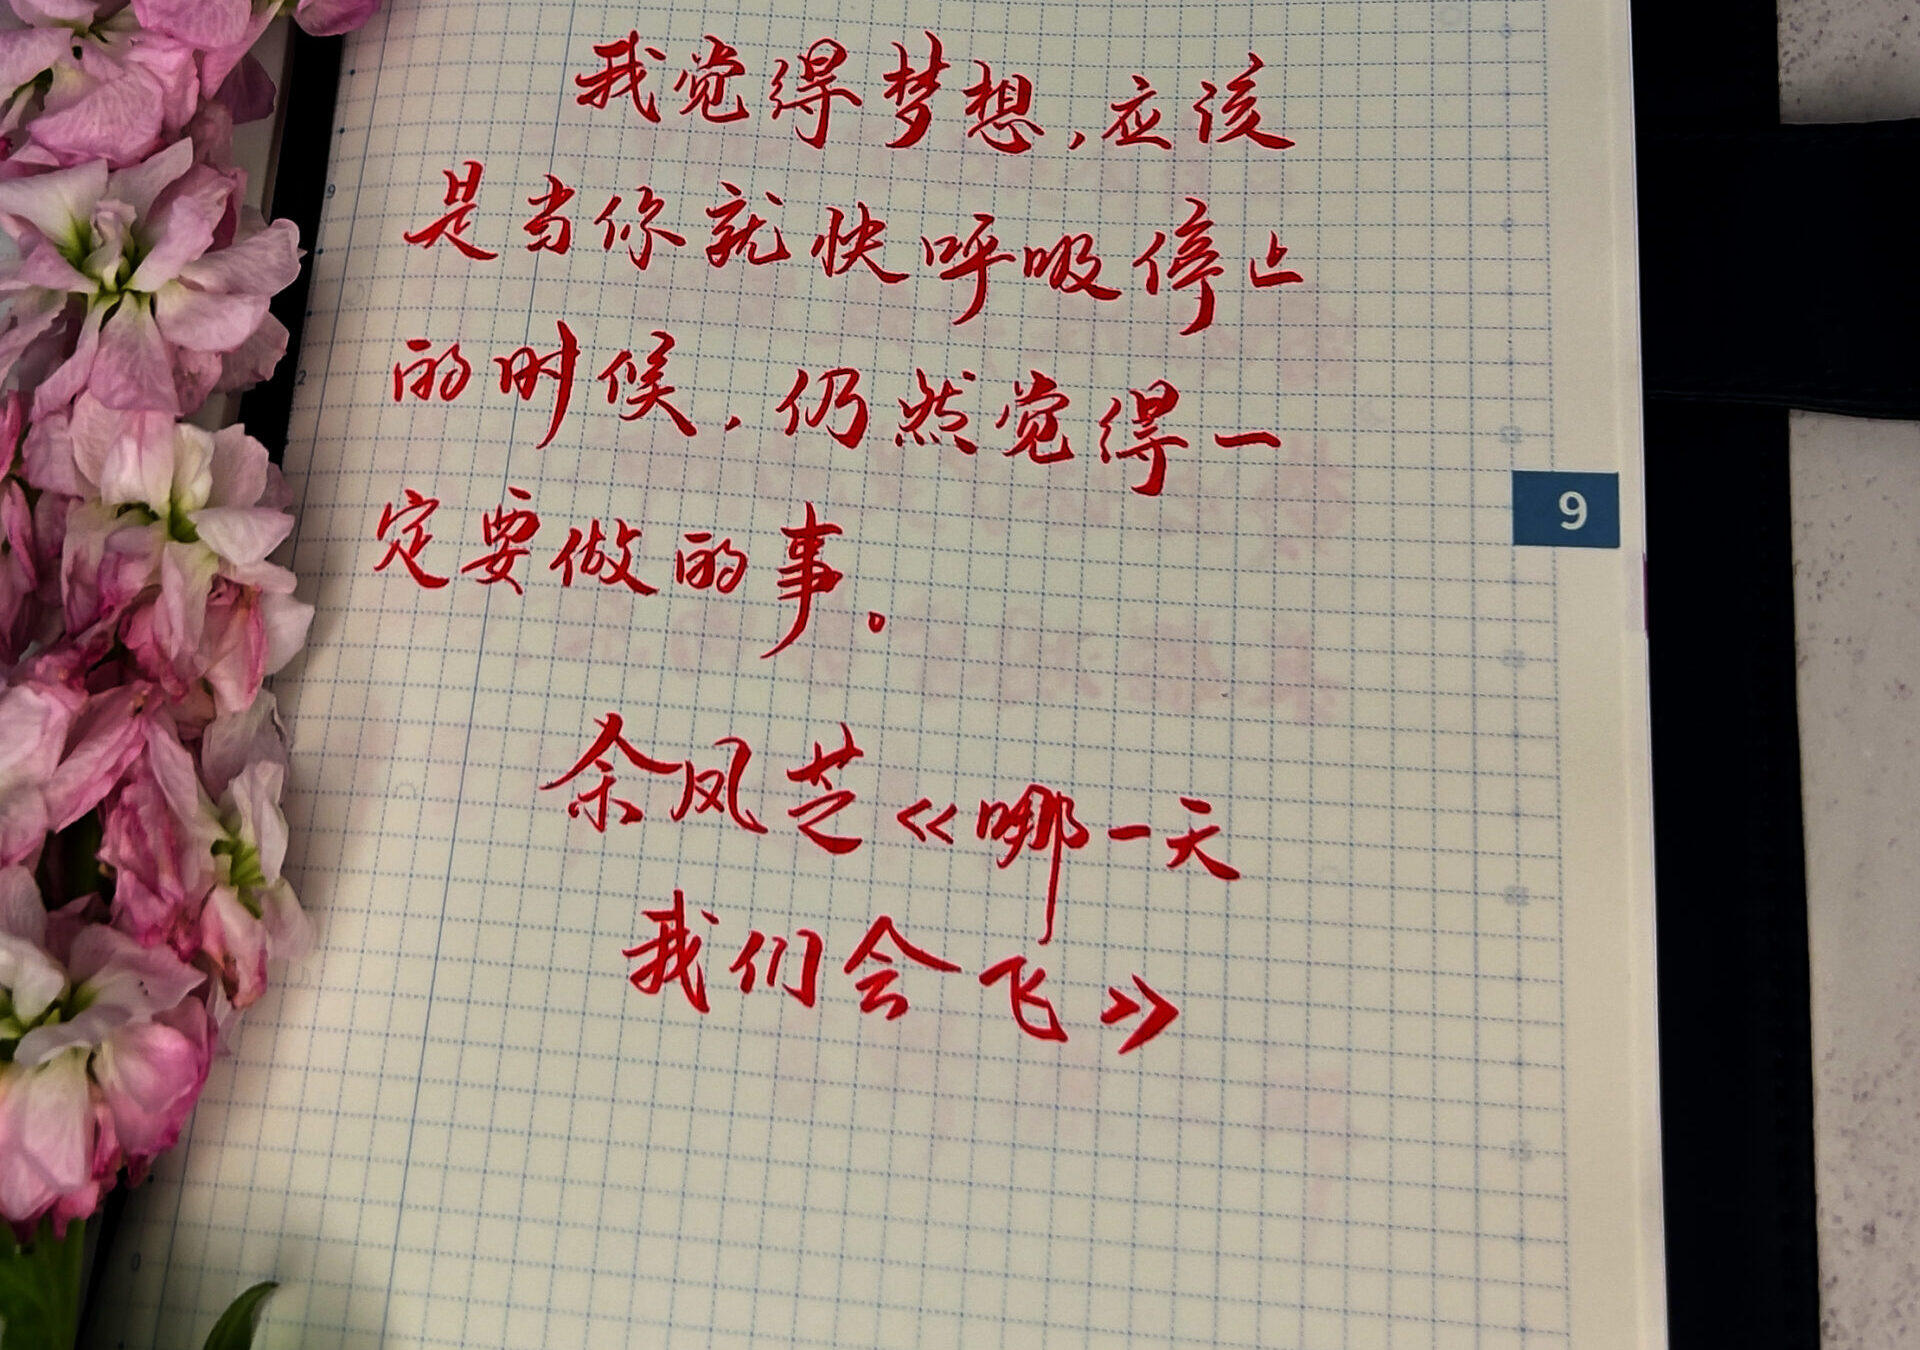 我觉得梦想,应该
是当你就快呼吸停止
的时候,仍然觉得一
定要做的事。
余风芝《哪一天
我们会飞》
9